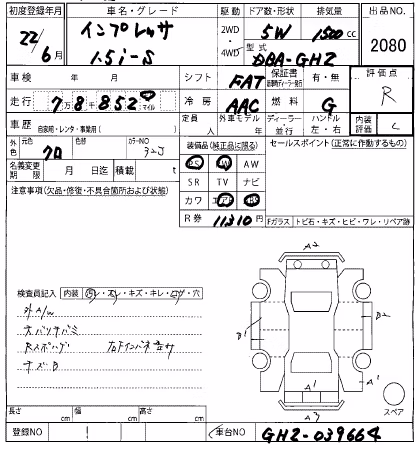 初度登録年月 車名・グレード 駆動 ドア数・形状 排気量 出品NO.
22/6月 インプレッサ 1.5i-S 2WD・4WD 5W 1500cc 2080
型式 DBA-GH2
車検 年 月 シフト FAT 保証書 有・無 評価点 R
走行 7万8千852 マイル 冷房 AAC 燃料 G
車歴 自家用・レンタ・事業用( ) 定員 人 外車モデル 年 ディーラー・並行 ハンドル 左・右 内装評価 C
外色 元色 クロ 色替 カラーNO 32J 装備品(純正品に限る) セールスポイント(正常に作動するもの)
PS PW AW
名義変更期限 月 日迄 積載 t SR TV ナビ
注意事項(欠品・修復・不具合箇所および状態) カワ エアB ABS
R券 11310円 Fガラス トビ石・キズ・ヒビ・ワレ・リペア跡
A2
検査員記入 内装 汚レ・スレ・キズ・キレ・コゲ・穴
外A/W
B1 B2
キズB
A1 A1
A3
スペア
長さ cm 幅 cm 高さ cm
登録NO 車台NO GH2-039664